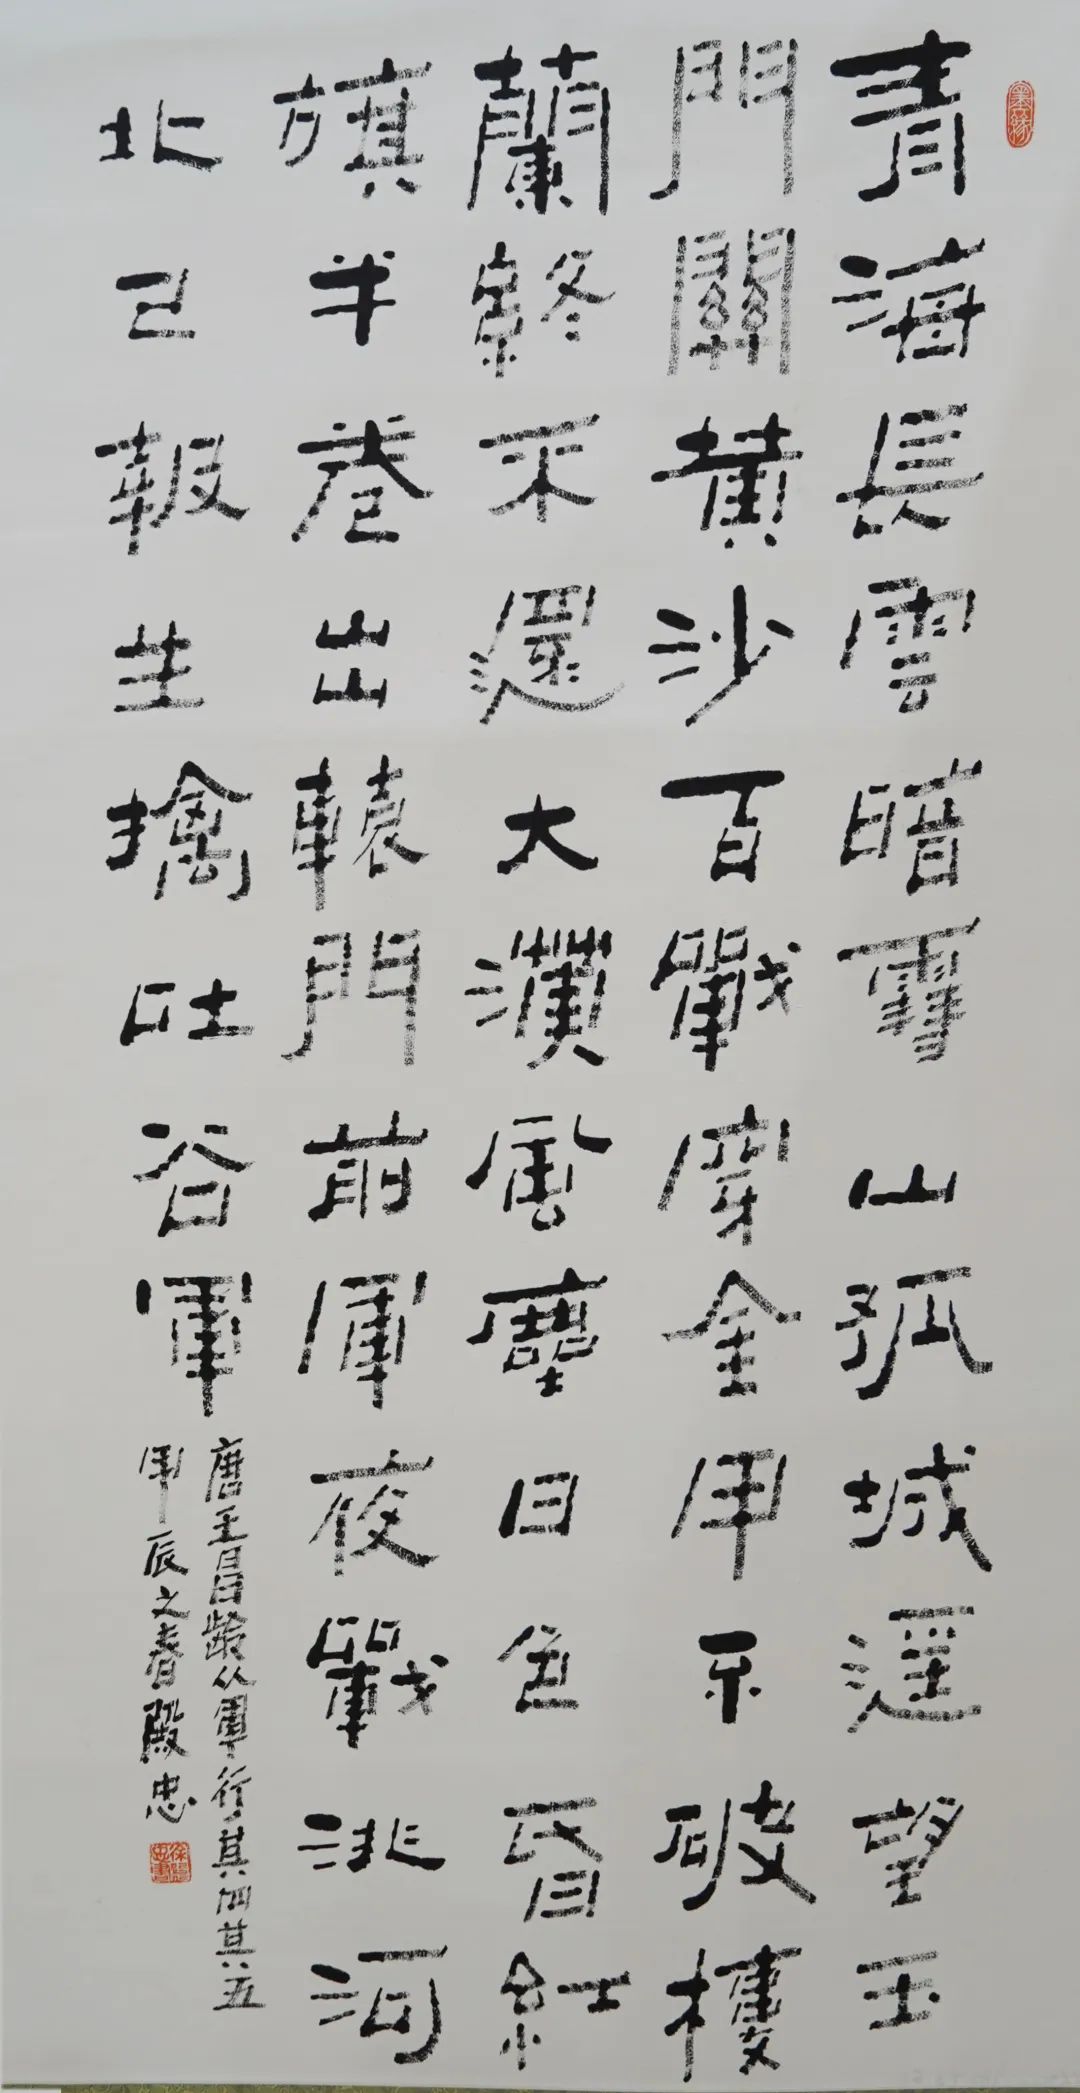 墨緣
青海長雲暗雪山孤城遥望玉
門關黄沙百戰穿金甲不破樓
蘭終不還大漠風塵日色昏紅
旗半卷出轅門前軍夜戰洮河
北已報生擒吐谷軍
唐王昌齡从軍行其四其五
甲辰之春殿忠